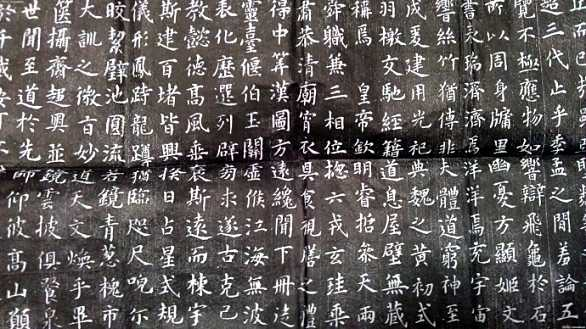 紹三代止乎
覽不極應物如響辯飛龜於石
所以周身牖里幽憂方顯姬文
濟濟焉洋洋焉充宇宙
響絲竹猶傳非夫體道窮神至
建用光祀典魏之黃初式
羽檄交馳經籍道息屋壁無藏
稱焉皇帝欽明睿哲參天兩
舜職兼三相位揔六戎玄珪乘
肅恭清廟宵衣具食視膳之禮
中年漢圖方遠纔聞下冊
靈臺偃伯玉關虛候江海無波
表化歷選列辟旁求遂古克己
教懿德高風垂裕斯遠而棟宇
斯建百堵皆興揆日占星式規
儀形鳳跱龍蹲猶臨咫尺莞爾
皎絜璧池圓流若鏡青葱槐市
大訓之微言妙道天文煥乎畢
篋攝齊趨奧並鏡雲披俱飡泉
世聞至道於先師仰彼高山願
於千載